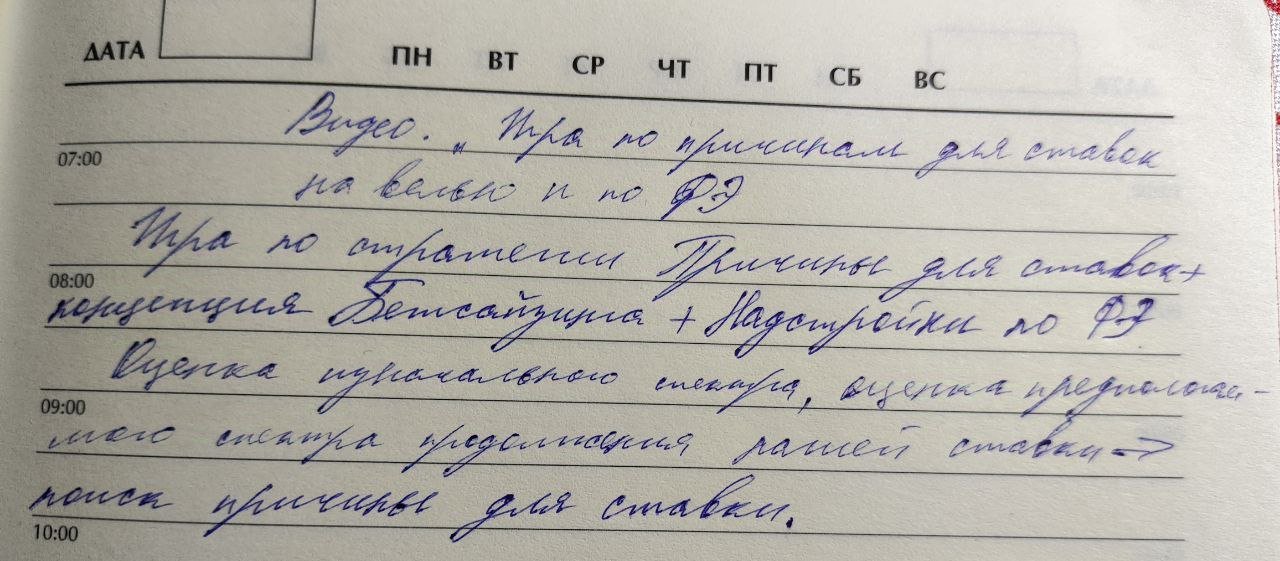 ДАТА ПН ВТ СР ЧТ ПТ СБ ВС
Видео. „ Игра по причинам для ставок
07:00
на велью и по ФЭ
Игра по стратегии Причины для ставок+
08:00
концепция Бетсайзинга + Надстройки по ФЭ
Оценка изначального спектра, оценка предполагае-
09:00
мого спектра продолжения нашей ставки =>
поиск причины для ставки.
10:00